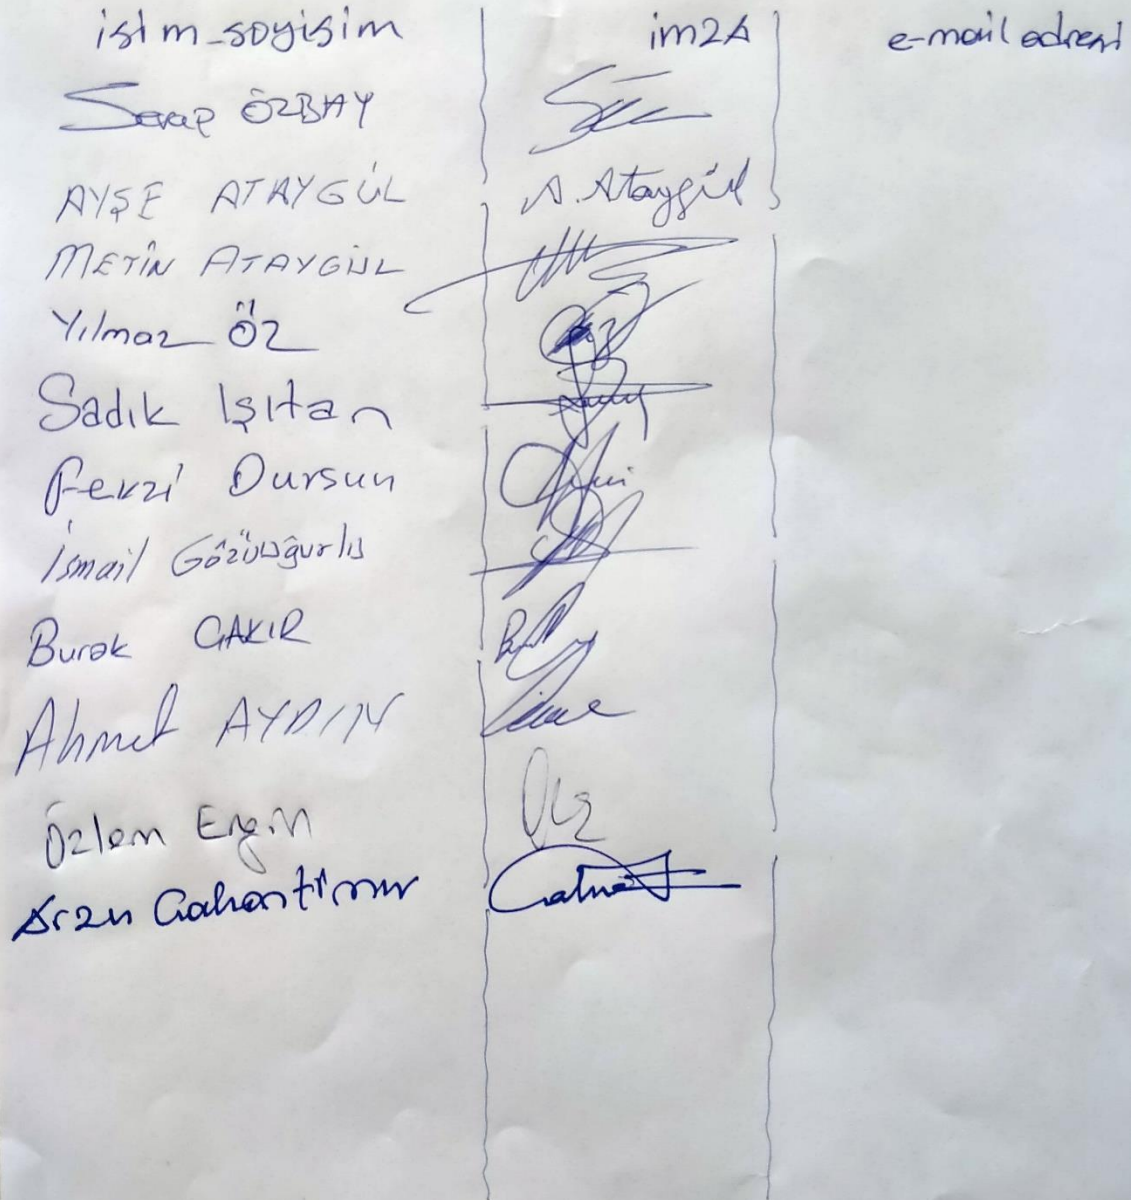 isim_soyisim imza e-mail adresi
Serap ÖZBAY
AYŞE ATAYGÜL A. Ataygül
METİN ATAYGÜL
Yılmaz ÖZ
Sadık Işıtan
Fevzi Dursun
İsmail Gözüuğurlu
Burak ÇAKIR
Ahmet AYDIN
Özlem Ergin
Arzu